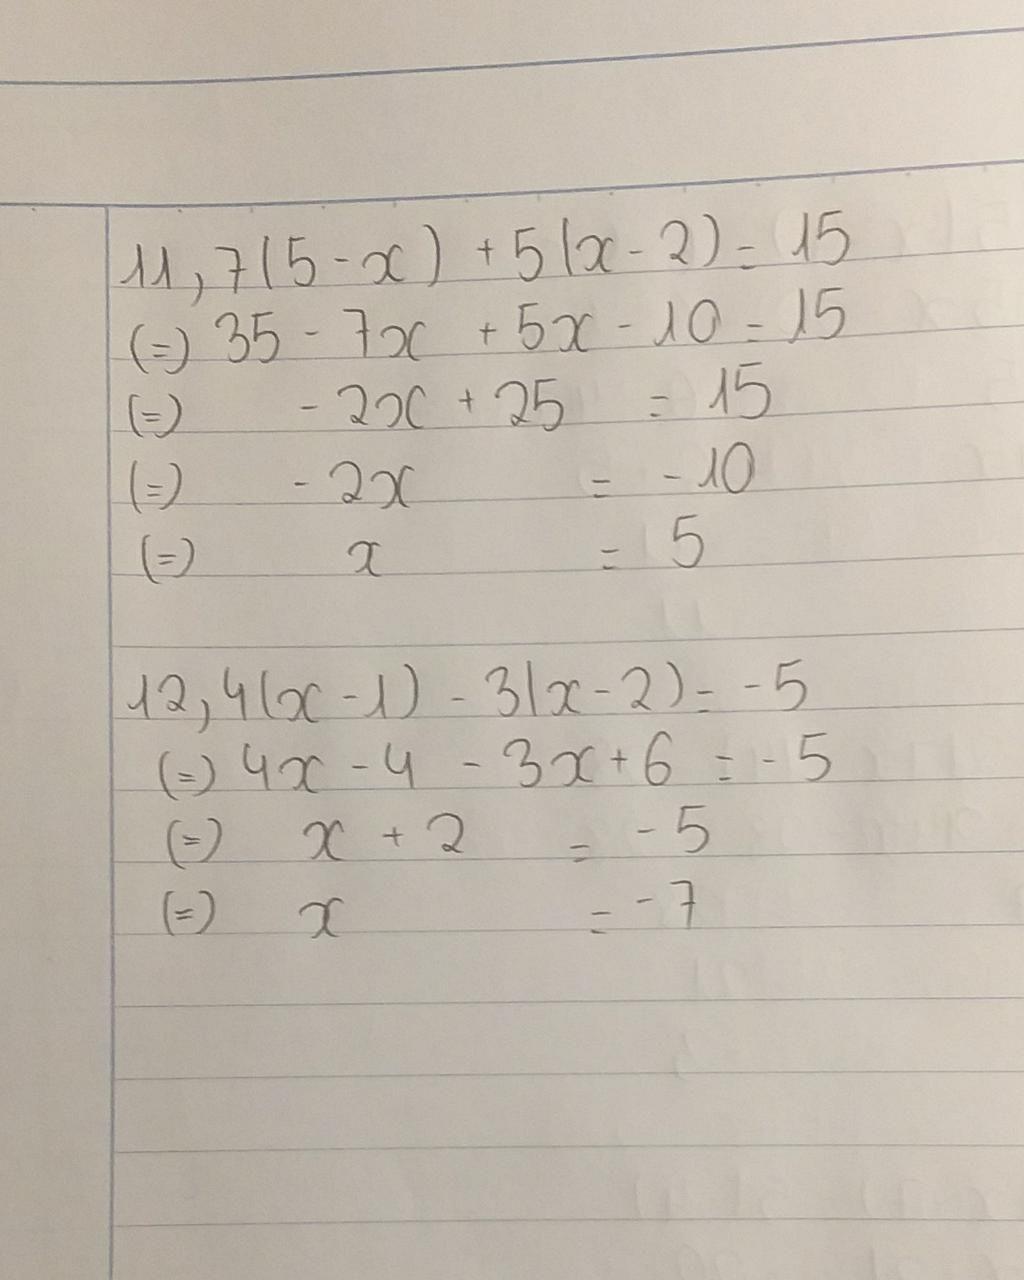 11, 7(5-x) + 5(x-2) = 15
(=) 35 - 7x + 5x - 10 = 15
(=) - 2x + 25 = 15
(=) - 2x = - 10
(=) x = 5
12, 4(x-1) - 3(x-2) = -5
(=) 4x - 4 - 3x + 6 = - 5
(=) x + 2 = - 5
(=) x = - 7